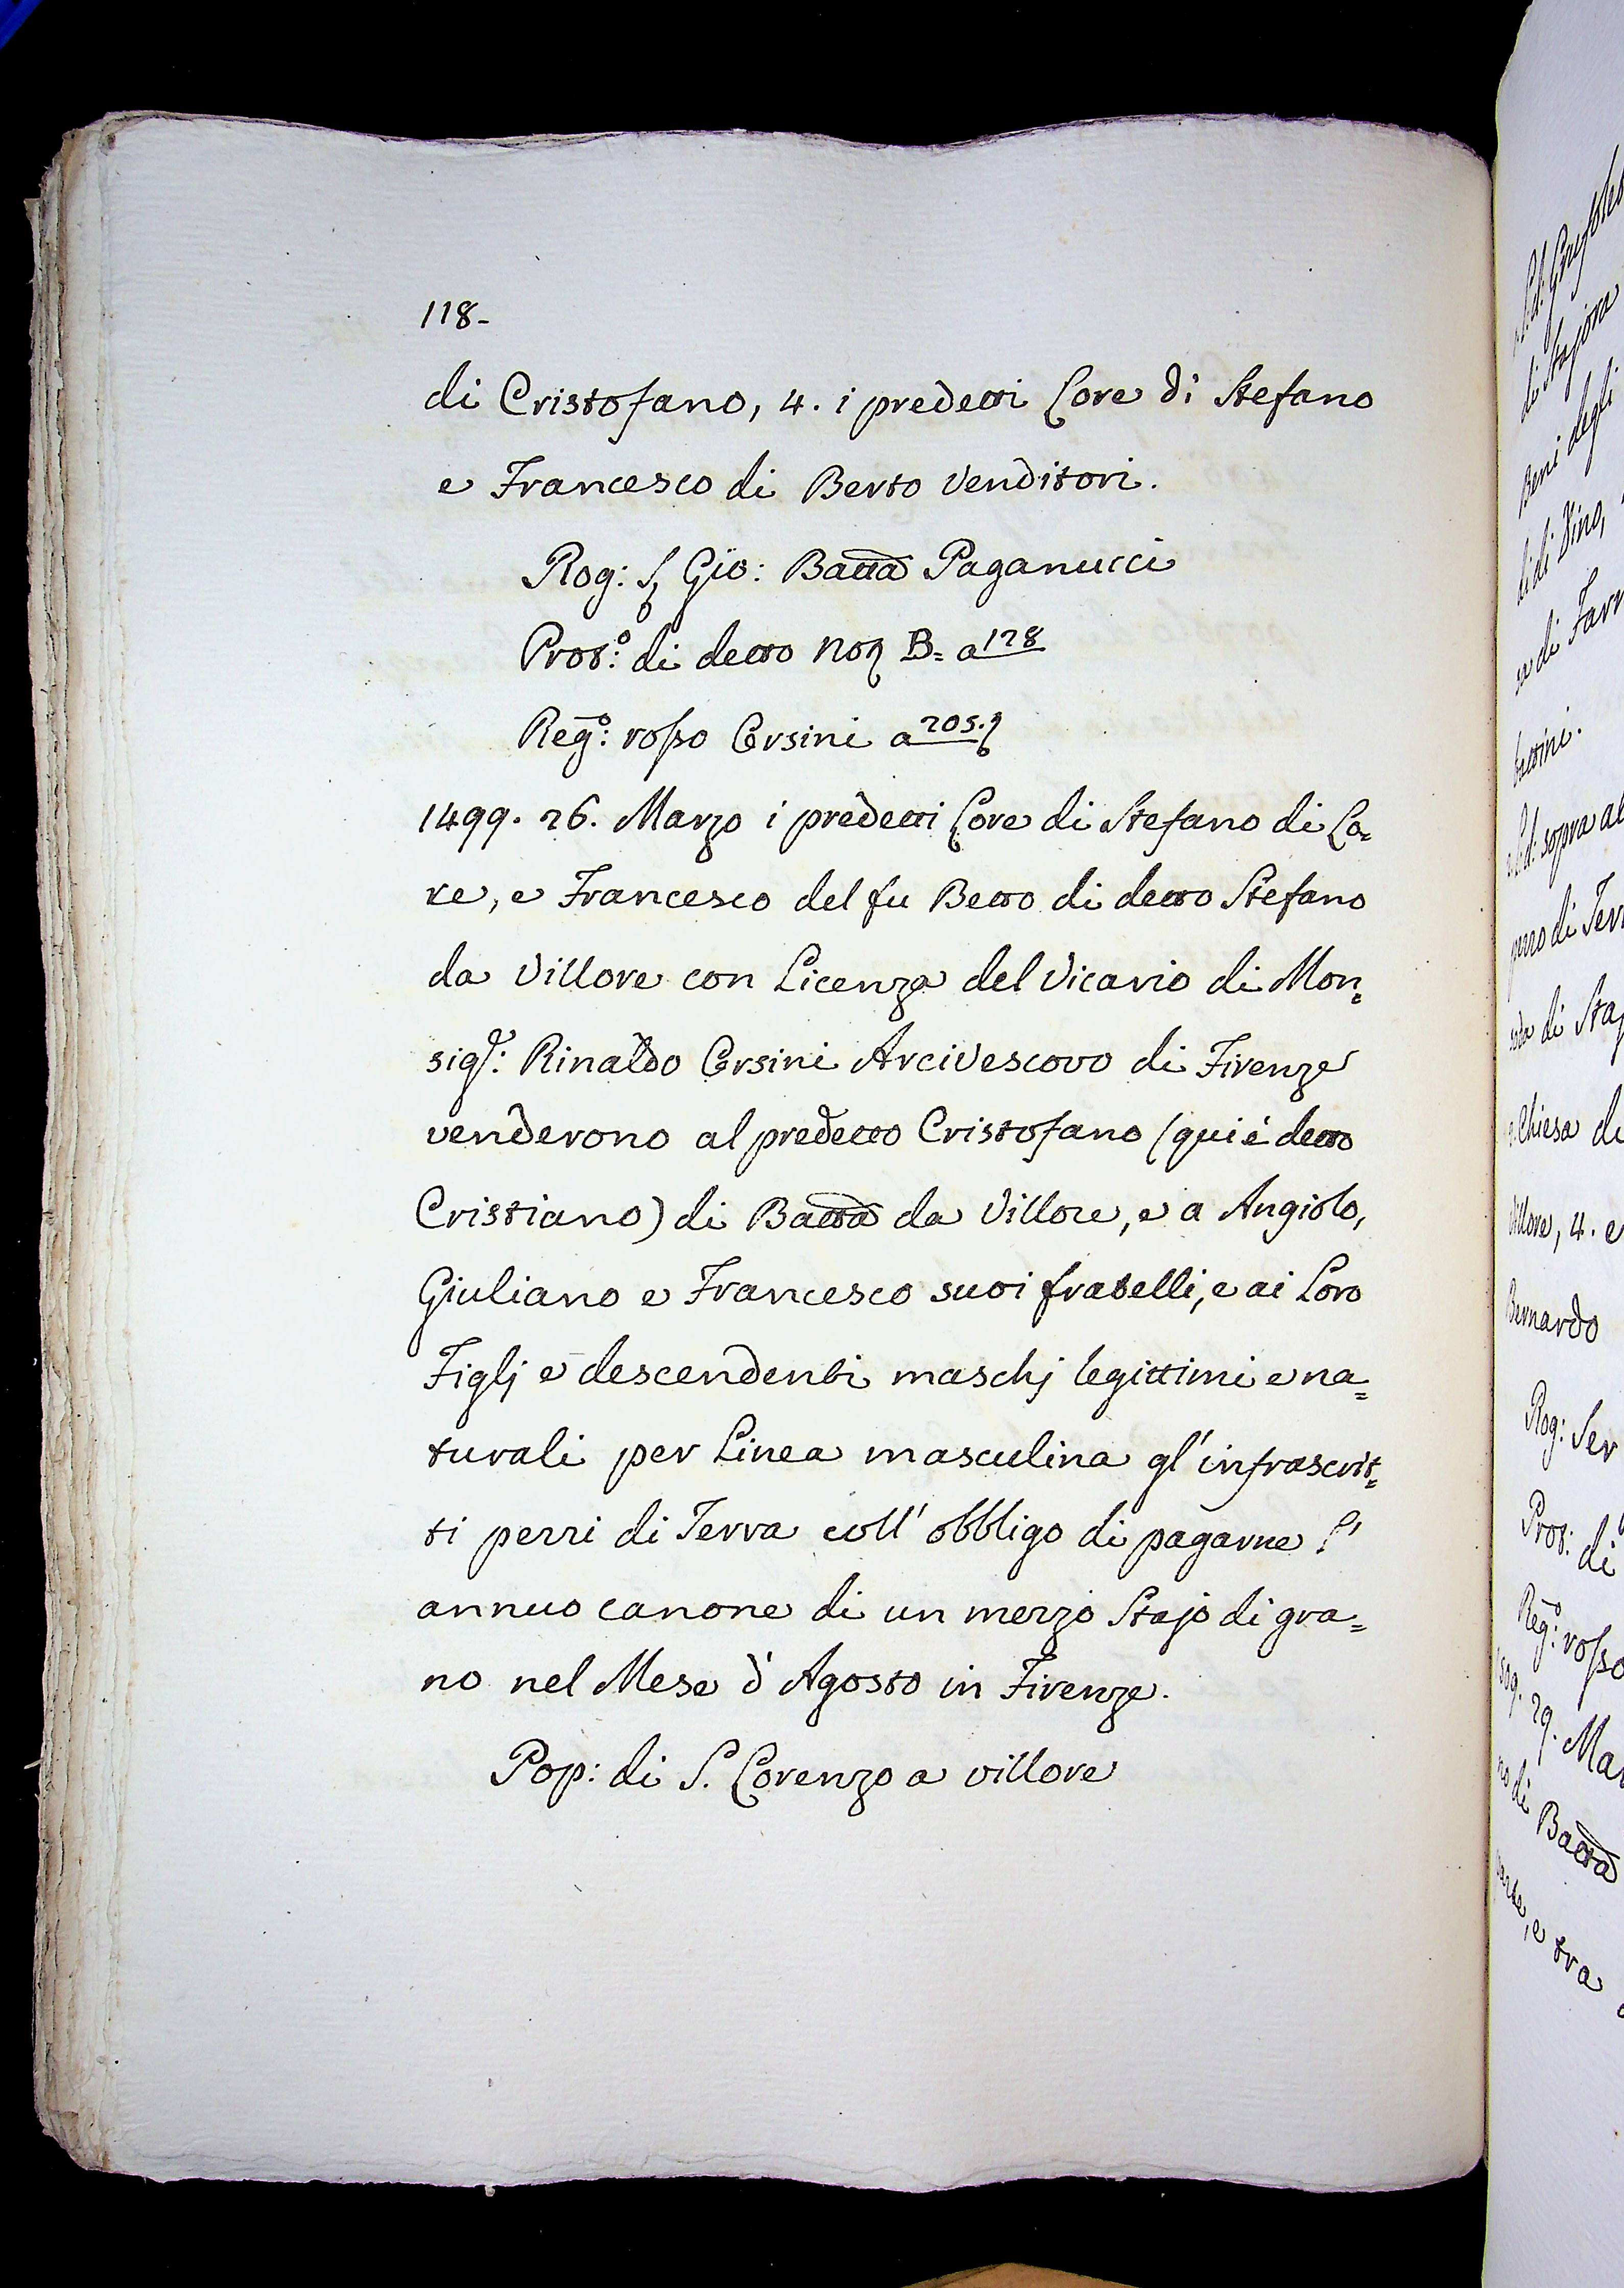 118-
di Cristofano, 4. i predetti Lore di Stefano
e Francesco di Berto Venditori.
Rog: S. Gio: Batta Paganucci
Prot:º di detto Noſ B= a 128
Reg:º rosso Orsini a 205.
1499. 26. Marzo i predetti Lore di Stefano di Lo=
re, e Francesco del fu Betto di detto Stefano
da Villore con Licenza del Vicario di Mon=
sigr: Rinaldo Orsini Arcivescovo di Firenze
venderono al predetto Cristofano (qui è detto
Cristiano) di Batta da Villore, e a Angiolo,
Giuliano e Francesco suoi fratelli, e ai Loro
Figlj e descendenti maschj legittimi e na=
turali per Linea masculina gl'infrascrit=
ti pezzi di Terra coll' obbligo di pagarne l'
annuo canone di un mezzo Stajo di gra=
no nel Mese d' Agosto in Firenze.
Pop: di S. Lorenzo a Villore
di Stajora
Beni degli
di di Dino,
Chiesa di
Villore, 4. e
Bernardo
Rog: Ser
Prot: di
Reg:º rosso
29. Mar
di Batta
e tra